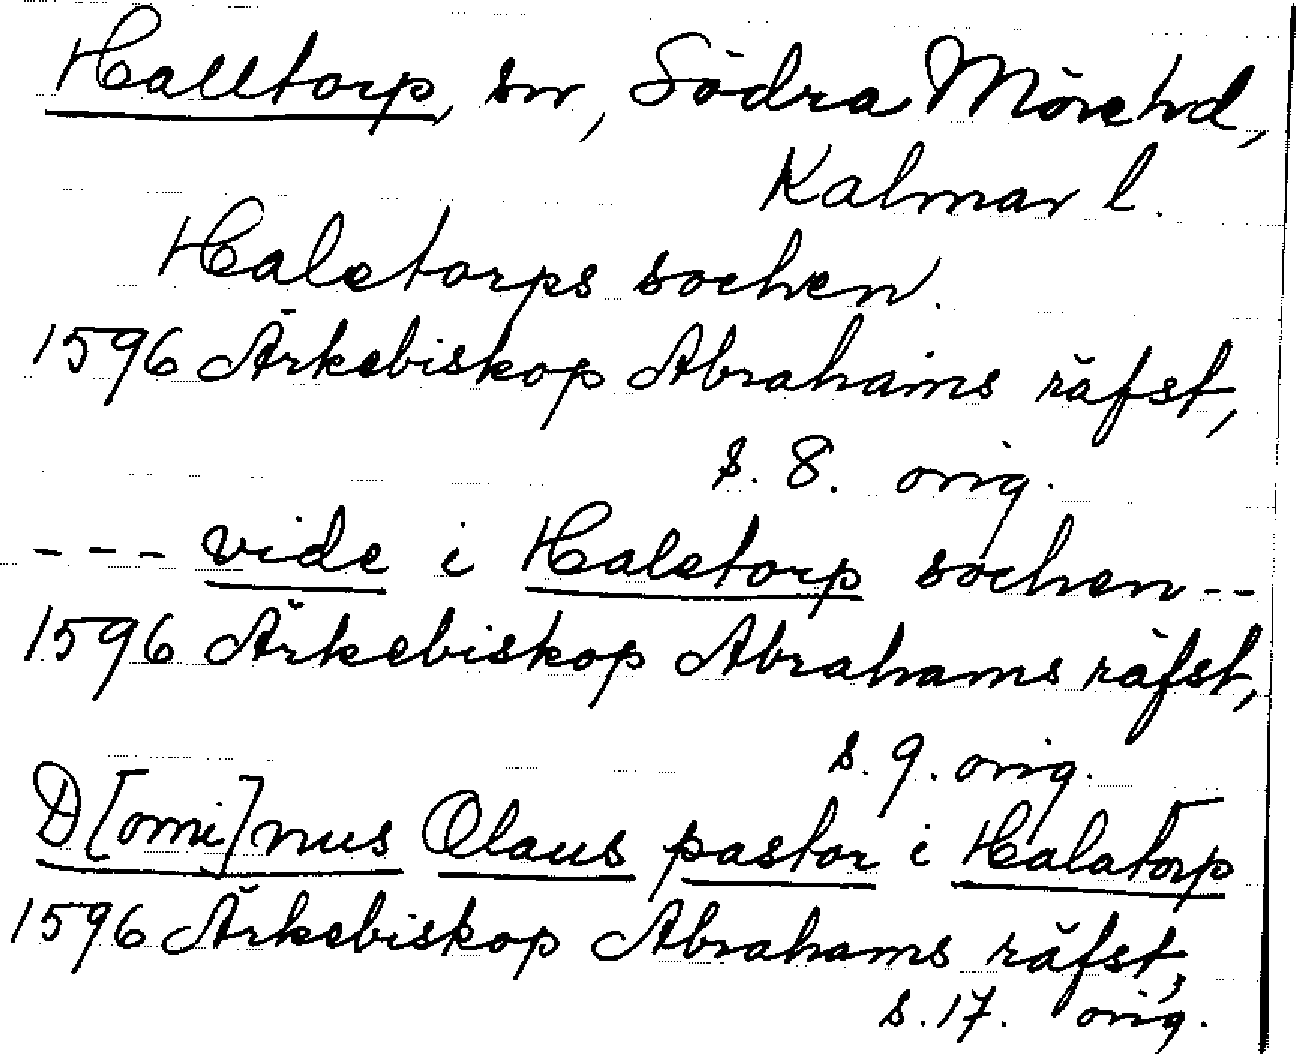 Halltorp, sn, Södra Möre hd,
Kalmar l.
Haletorps sochen.
1596 Ärkebiskop Abrahams räfst,
s. 8. orig.
--- vide i Haletorp sochen --
1596 Ärkebiskop Abrahams räfst,
s. 9. orig.
D[omi]nus Olaus pastor i Halatorp
1596 Ärkebiskop Abrahams räfst,
s. 17. orig.